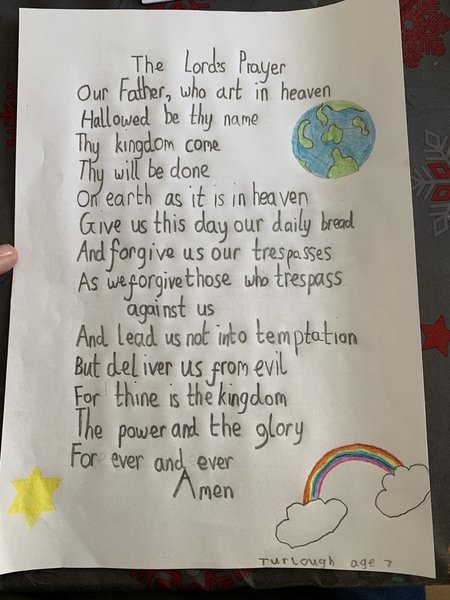 The Lord's Prayer
Our Father, who art in heaven
Hallowed be thy name
Thy kingdom come
Thy will be done
On earth as it is in heaven
Give us this day our daily bread
And forgive us our trespasses
As we forgive those who trespass
against us
And lead us not into temptation
But deliver us from evil
For thine is the kingdom
The power and the glory
For ever and ever
Amen
Turlough age 7